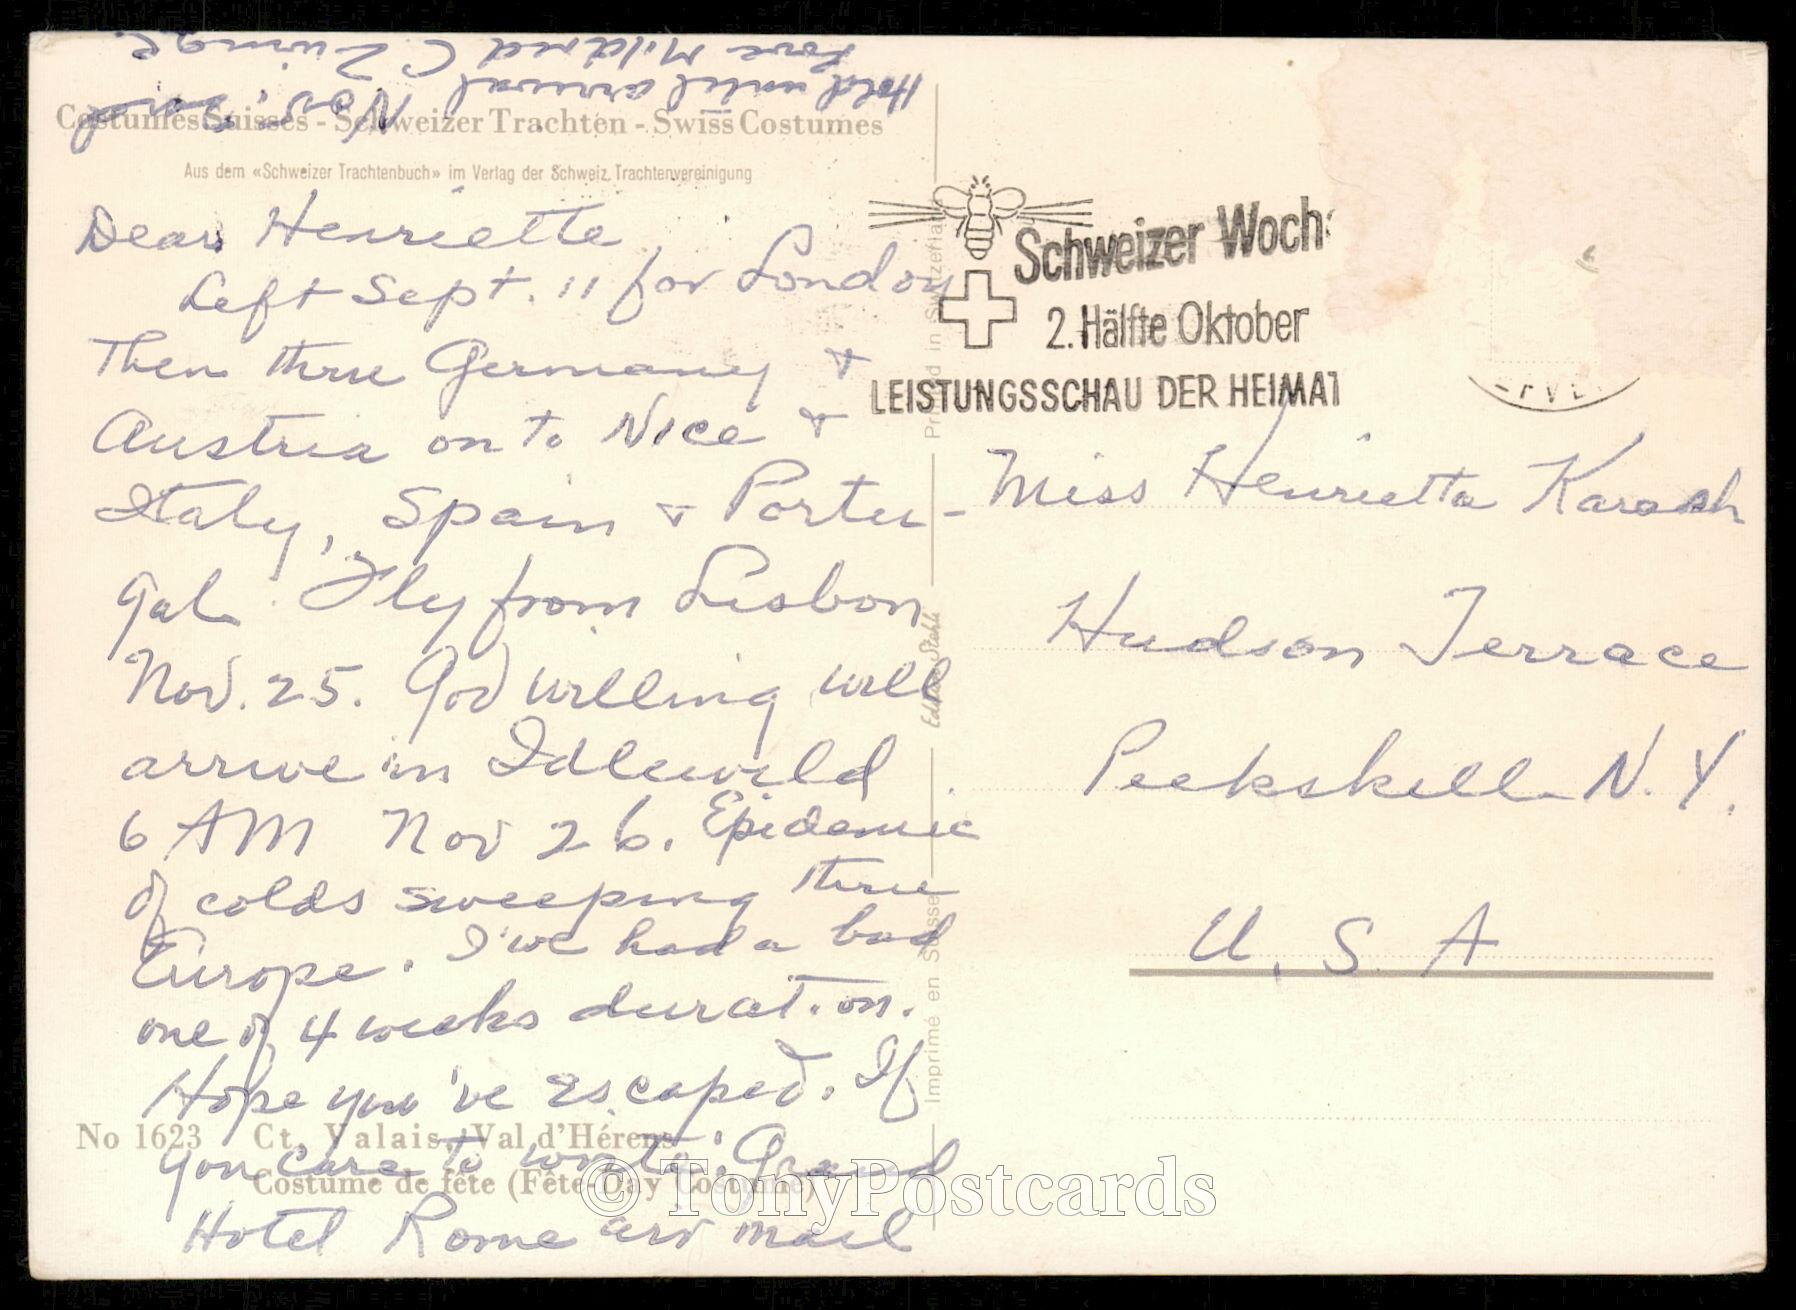 Costumes Suisses - Schweizer Trachten - Swiss Costumes
Aus dem «Schweizer Trachtenbuch» im Verlag der Schweiz. Trachtenvereinigung
Dear Henriette
Left Sept. 11 for London
Then thru Germany &
Austria on to Nice &
Italy, Spain & Portu-
gal. Fly from Lisbon
Nov. 25. God willing will
arrive in Idlewild
6 AM Nov 26. Epidemic
of colds sweeping thru
Europe. I've had a bad
one of 4 weeks duration.
Hope you've escaped. If
you care to write: Grand
Hotel Rome air mail
Hold until arrival Nov.
Love Mildred C.
No 1623 Ct. Valais, Val d'Hérens
Costume de fête (Fête-Day Costume)
Printed in Switzerland
Imprimé en Suisse
Schweizer Woch
2. Hälfte Oktober
LEISTUNGSSCHAU DER HEIMAT
Miss Henrietta Karash
Hudson Terrace
Peekskill N.Y.
U.S.A
© TonyPostcards